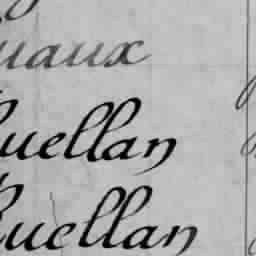 uaux
Quellan
Quellan